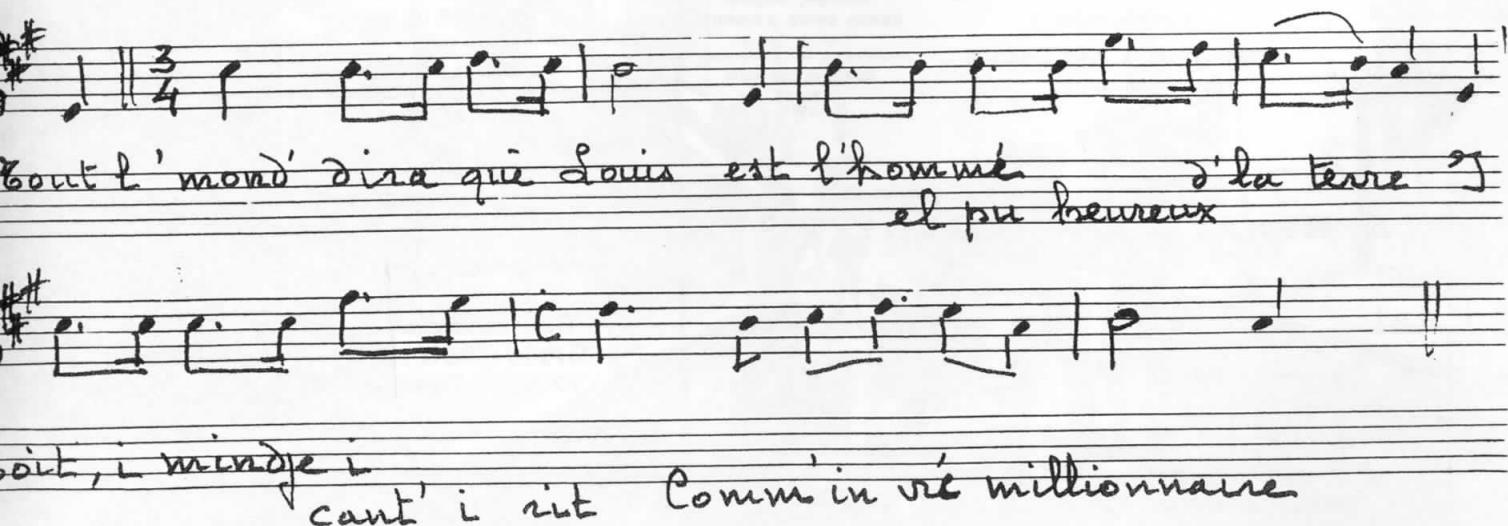 3
4
Tout l' mond' dira que Louis est l'homme d'la terre I
el pu heureux
C
boit, i mindje i
cant' i rit Comm' in vré millionnaire